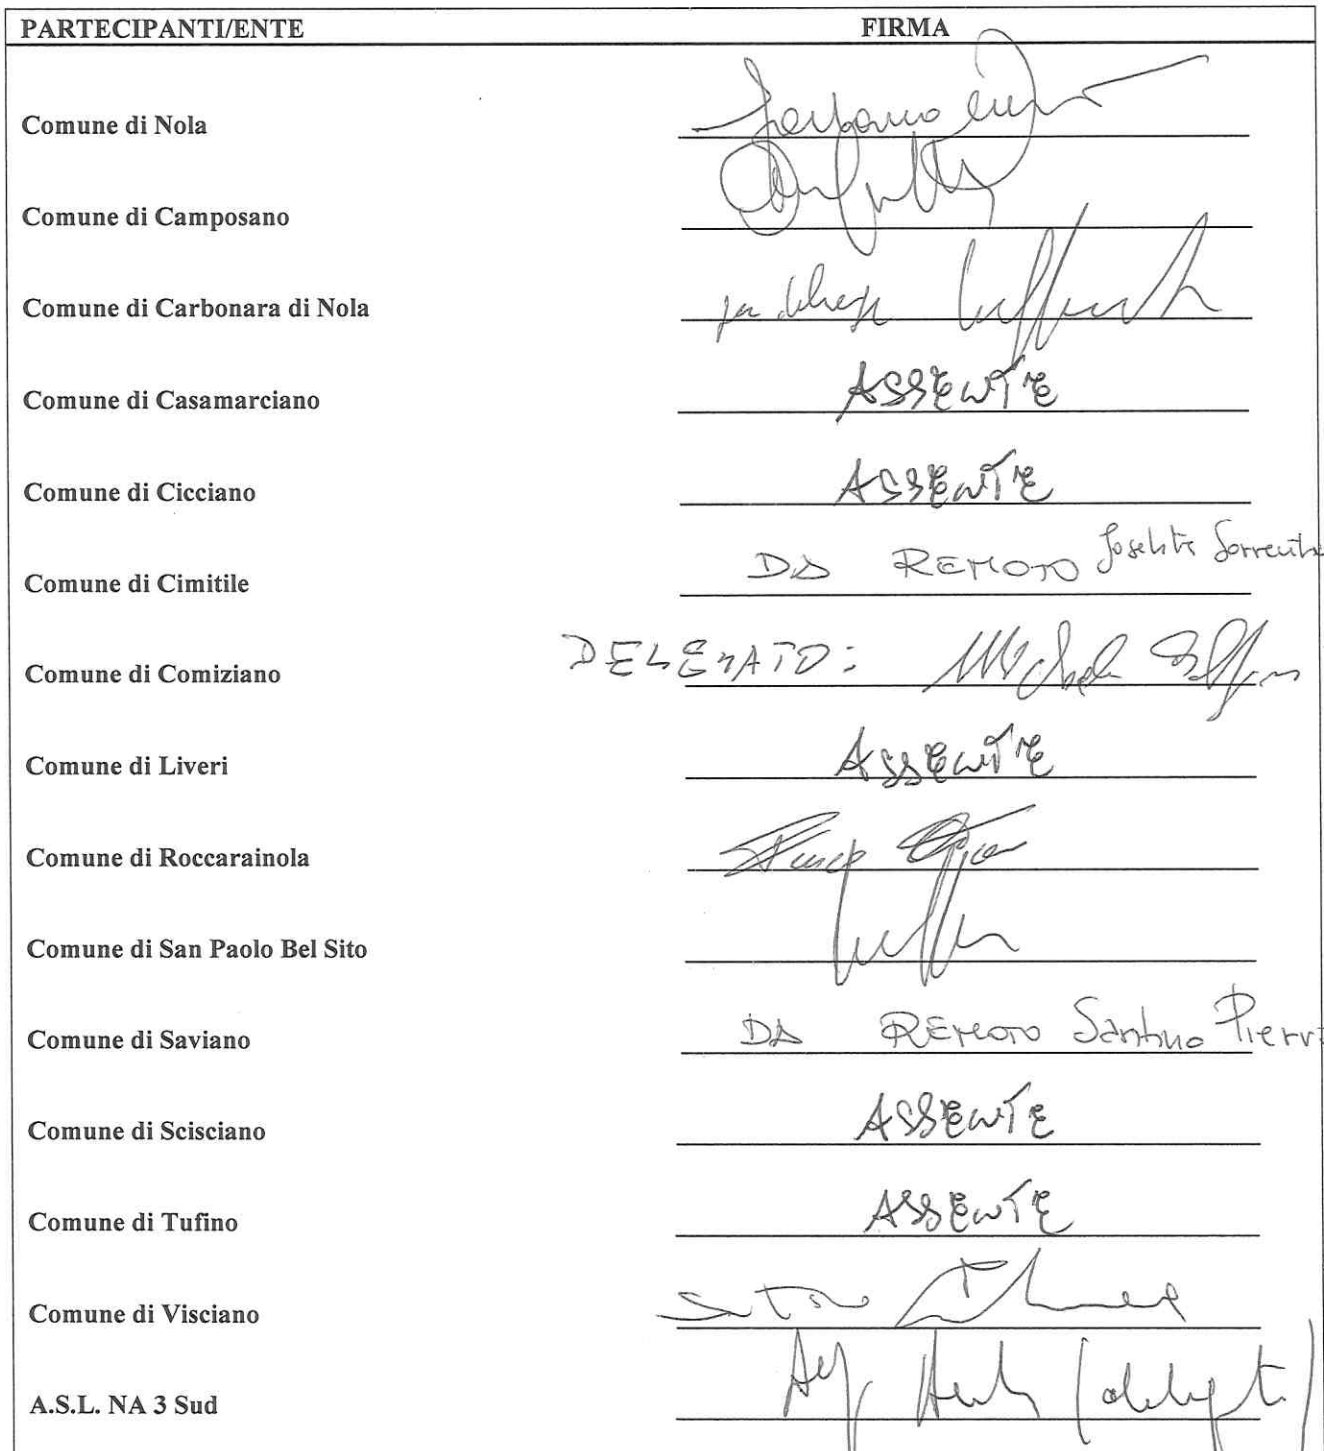 PARTECIPANTI/ENTE FIRMA
Comune di Nola
Comune di Camposano
Comune di Carbonara di Nola per delega
Comune di Casamarciano ASSENTE
Comune di Cicciano ASSENTE
Comune di Cimitile DA REMOTO Joselita Sorrentino
Comune di Comiziano DELEGATO: Michele
Comune di Liveri ASSENTE
Comune di Roccarainola
Comune di San Paolo Bel Sito
Comune di Saviano DA REMOTO Santino Pierv
Comune di Scisciano ASSENTE
Comune di Tufino ASSENTE
Comune di Visciano
A.S.L. NA 3 Sud (delegato)